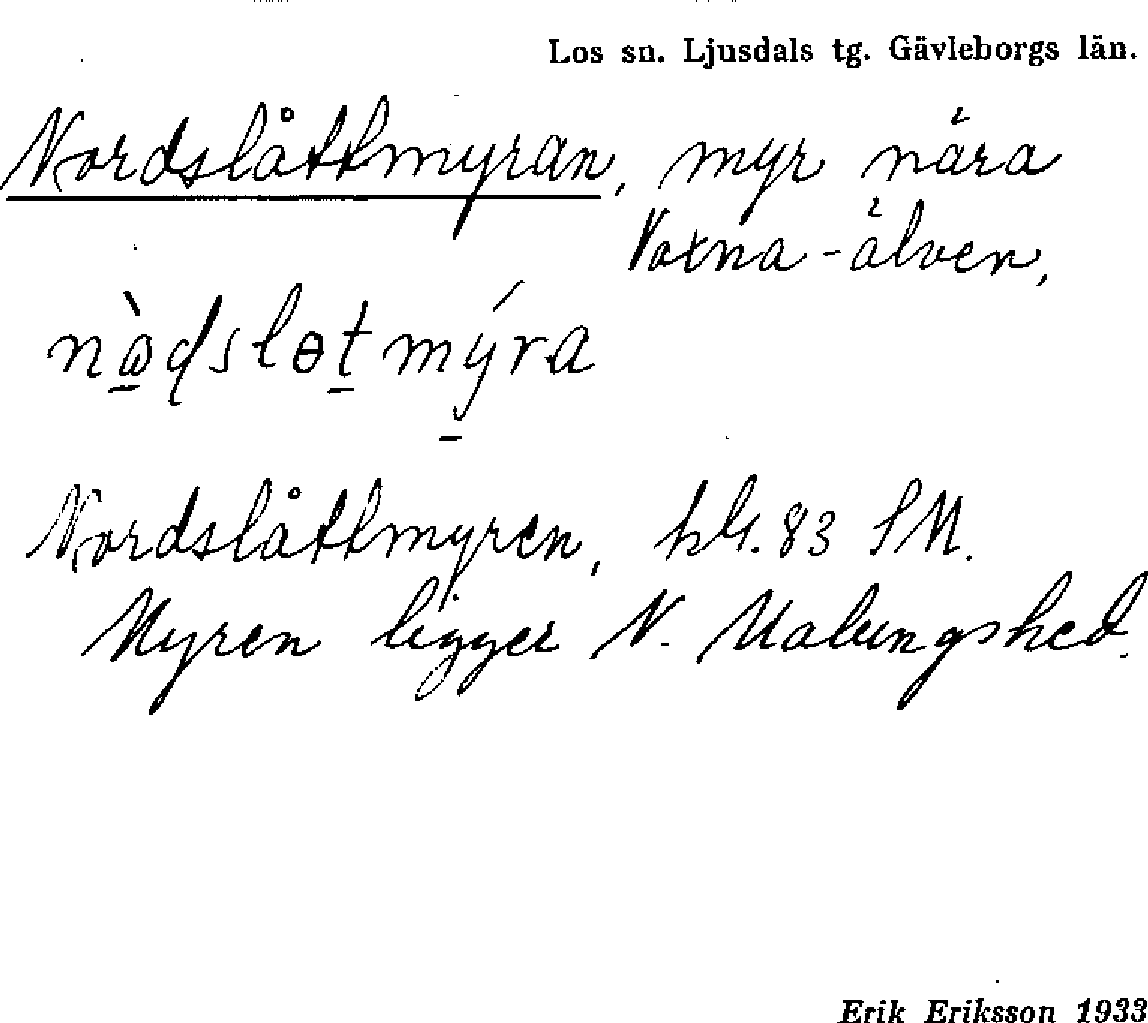 Los sn. Ljusdals tg. Gävleborgs län.
Nordslåttmyran, myr nära
Voxna-älven,
Nordslåttmyren, kbl. 83 SM.
Myren ligger N. Malungshed.
Erik Eriksson 1933